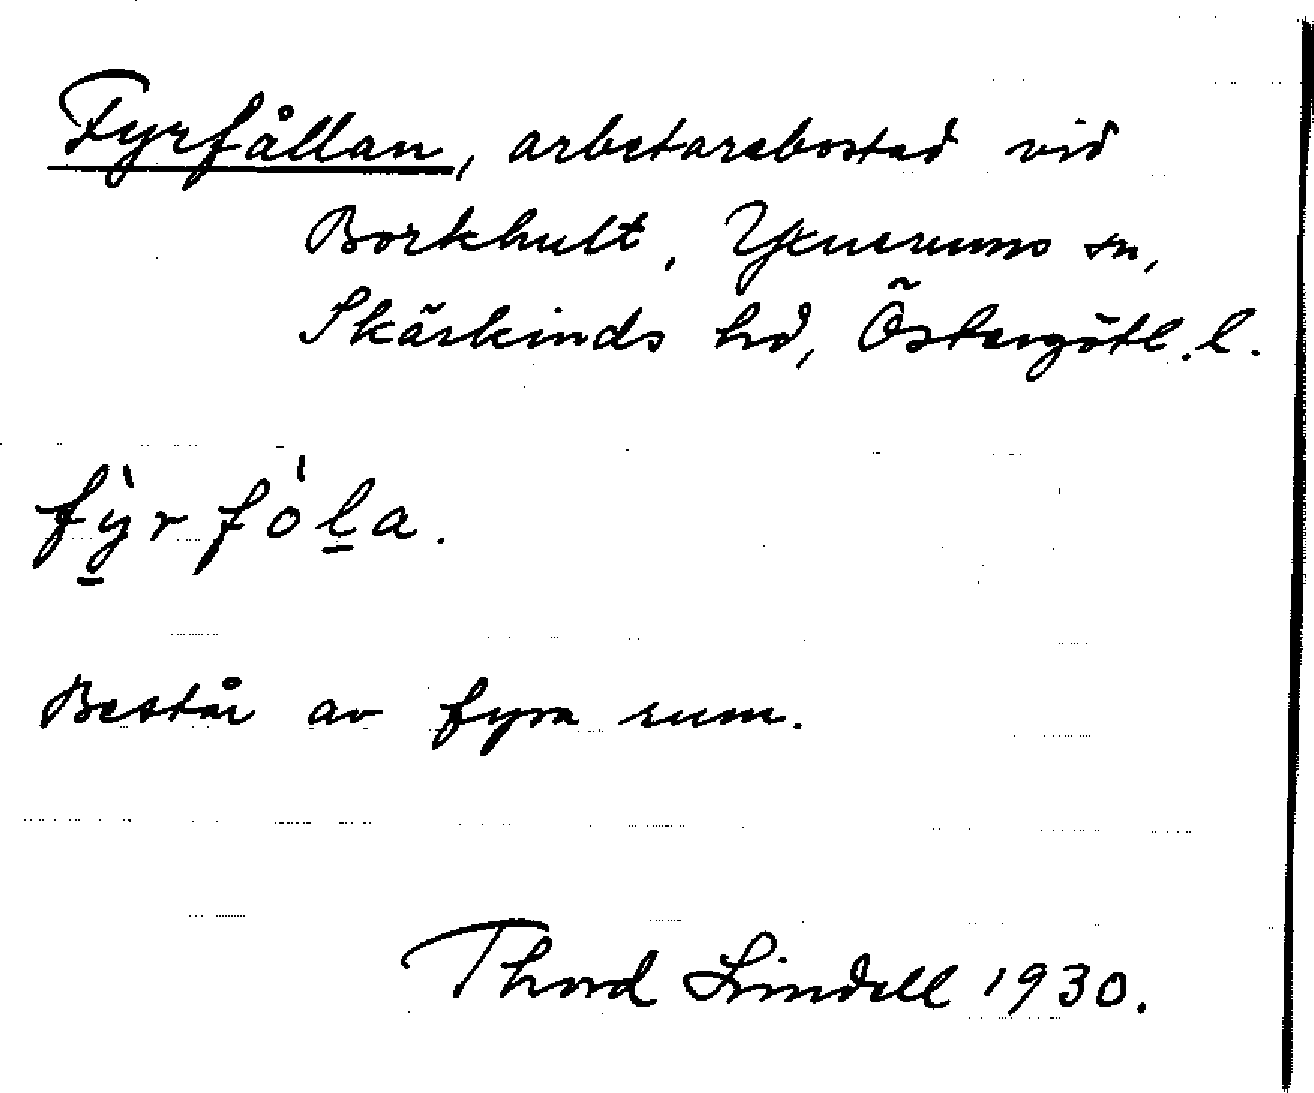 Fyrfållan, arbetarebostad vid
Borkhult, Yxnerums sn,
Skärkinds hd, Östergötl. l.
fỳ̠rfo̍l̠a.
Består av fyra rum.
Thord Lindell 1930.